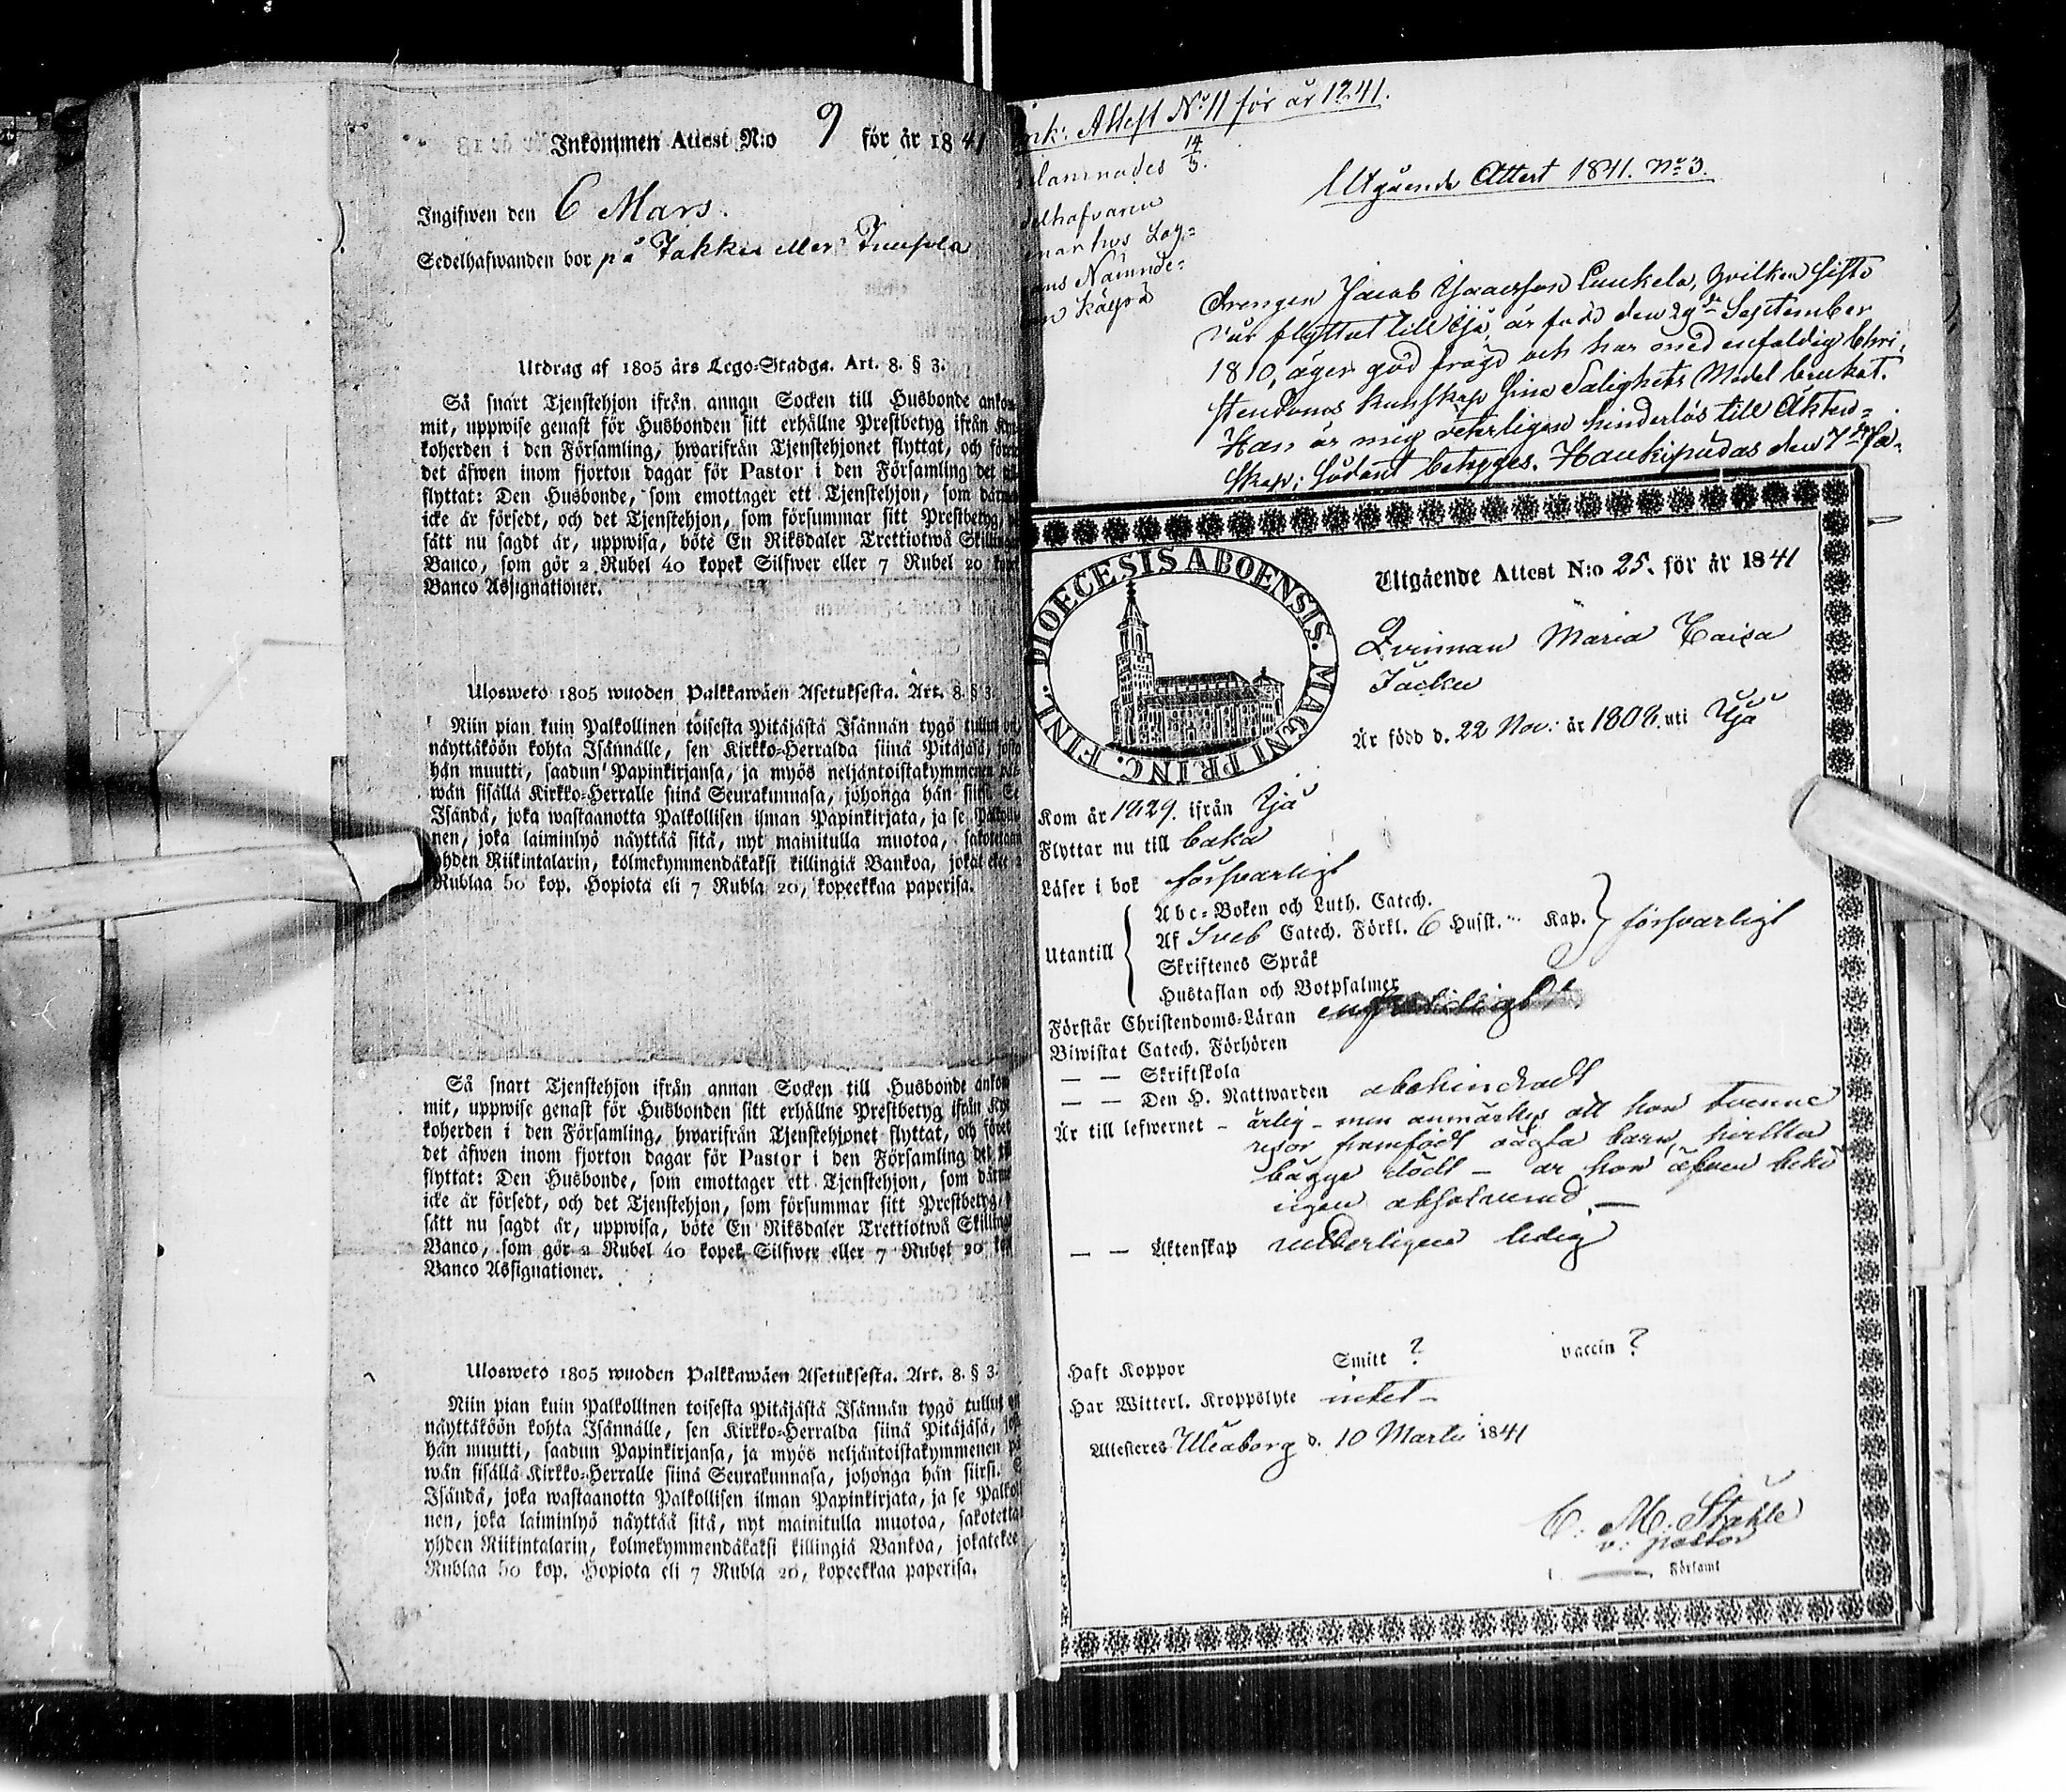 Inkommen Attest N:o 9 för år 1841
Ingifwen den 6 Mars.
Sedelhafwanden bor på Jakku eller
Utdrag af 1805 års Lego-Stadga. Art. 8. § 3.
Så snart Tjenstehjon ifrån annan Socken till Husbonde ankom-
mit, uppwise genast för Husbonden sitt erhållne Prestbetyg ifrån Kyr-
koherden i den Församling, hwarifrån Tjenstehjonet flyttat, och förer
det äfwen inom fjorton dagar för Pastor i den Församling det till-
flyttat: Den Husbonde, som emottager ett Tjenstehjon, som därmed
icke är försedt, och det Tjenstehjon, som försummar sitt Prestbetyg,
sätt nu sagdt är, uppwisa, böte En Riksdaler Trettiotwå Skillingar
Banco, som gör 2 Rubel 40 kopek Silfwer eller 7 Rubel 20 kop
Banco Assignationer.
Ulosweto 1805 wuoden Palkkawäen Asetuksesta. Art. 8. § 3.
Niin pian kuin Palkollinen toisesta Pitäjästä Isännän tygö tullut
näyttäköön kohta Isännälle, sen Kirkko-Herralda siinä Pitäjäsä, josta
hän muutti, saadun Papinkirjansa, ja myös neljäntoistakymmenen päi-
wän sisällä Kirkko-Herralle siinä Seurakunnasa, johonga hän siirsi. Se
Isändä, joka wastaanotta Palkollisen ilman Papinkirjata, ja se Palkolli-
nen, joka laiminlyö näyttää sitä, nyt mainitulla muotoa, sakotetaan
yhden Riikintalarin, kolmekymmendäkaksi killingiä Bankoa, jokatekee 2
Rublaa 50 kop. Hopiota eli 7 Rubla 20, kopeekkaa paperisa.
Så snart Tjenstehjon ifrån annan Socken till Husbonde ankom
mit, uppwise genast för Husbonden sitt erhållne Prestbetyg ifrån Kyr
koherden i den Församling, hwarifrån Tjenstehjonet flyttat, och föret
det äfwen inom fjorton dagar för Pastor i den Församling det till
flyttat: Den Husbonde, som emottager ett Tjenstehjon, som därme
icke är försedt, och det Tjenstehjon, som försummar sitt Prestbetyg,
sätt nu sagdt är, uppwisa, böte En Riksdaler Trettiotwå Skilling
Banco, som gör 2 Rubel 40 kopek Silfwer eller 7 Rubel 20 kop
Banco Assignationer.
Ulosweto 1805 wuoden Palkkawäen Asetuksesta. Art. 8. § 3.
Niin pian kuin Palkollinen toisesta Pitäjästä Isännän tygö tullut
näyttäköön kohta Isännälle, sen Kirkko-Herralda siinä Pitäjäsä, jost
hän muutti, saadun Papinkirjansa, ja myös neljäntoistakymmenen pä
wän sisällä Kirkko-Herralle siinä Seurakunnasa, johonga hän siirsi. S
Isändä, joka wastaanotta Palkollisen ilman Papinkirjata, ja se Palkol
nen, joka laiminlyö näyttää sitä, nyt mainitulla muotoa, sakotetta
yhden Riikintalarin, kolmekymmendäkaksi killingiä Bankoa, jokatekee
Rublaa 50 kop. Hopiota eli 7 Rubla 20, kopeekkaa paperisa.
ink: Attest No 11 för år 1841.
lämnades 14/3.
delhafvaren
nar hos Lag-
ans Nämnde-
Utgående Attest 1841. No 3.
Drengen Jacob Jacobsson Luukela, hvilken sisto
vår flyttat till Ijå, är född den 29de September
1810, äger god frägd och har med enfaldig Chri-
stendoms kunskap sina Salighets Medel brukat.
Han är mig veterligen hinderlös till Äkten-
skap; sådant betyges. Haukipudas den 7de
DIOECESIS ABOENSIS. MAGNI PRINC. FINL.
Utgående Attest N:o 25. för år 1841
Qvinnan Maria Caisa
Jacku
Är född d. 22 Nov: år 1808. uti Ijå
Kom år 1829. ifrån Ijå
Flyttar nu till baka
Läser i bok försvarligt
Utantill
Abc-Boken och Luth. Catech.
Af Sveb Catech. Förkl. 6 Husst. Kap. försvarligt
Skriftenes Språk
Hustaflan och Botpsalmer
Förstår Christendoms-Läran
Biwistat Catech. Förhören
— — Skriftskola
— — Den H. Nattwarden obehindradt
Är till lefwernet - ärlig - men anmärkes att hon tvenne
resor framfödt oägta barn, hvilka
bägge dödt - är hon äfven behö
rigen absolverad. —
— — Äktenskap veterligen ledig
Haft Koppor Smitt ? vaccin ?
Har Witterl. Kroppslyte intet -
Attesteres Uleåborg d. 10 Martii 1841
C. M. Ståhle
v: pastor
Församl